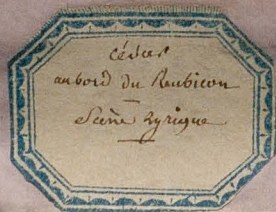 César
au bord du Rubicon
Scène Lyrique